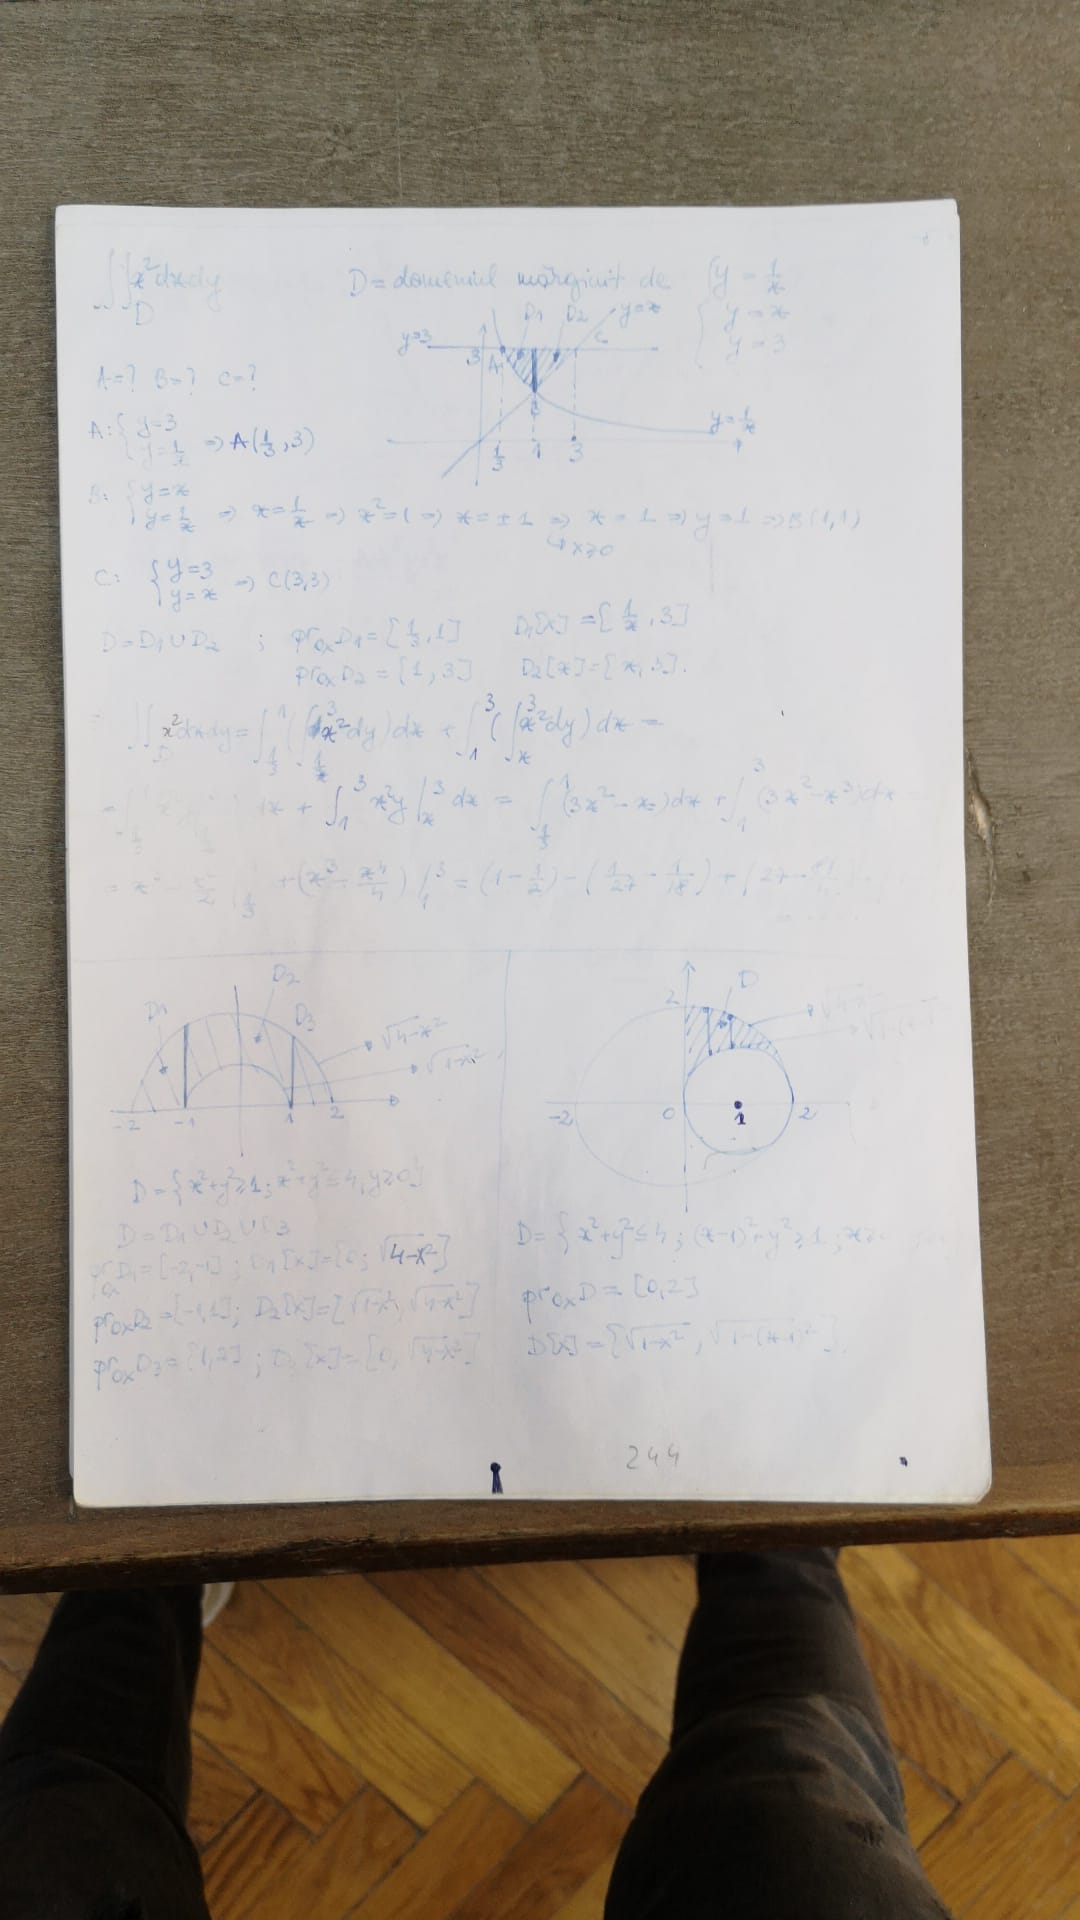 ∫∫x²dxdy
D
D = domeniul mărginit de { y = 1/x
y = x
y = 3
D1 D2 y=x
y=3 3 A C
B
y=1/x
1/3 1 3
A=? B=? C=?
A: { y=3
y=1/x => A(1/3, 3)
B: { y=x
y=1/x => x=1/x => x²=1 => x=±1 => x=1 => y=1 => B(1,1)
↳ x≥0
C: { y=3
y=x => C(3,3)
D=D1∪D2 ; prOxD1=[1/3,1] D1[x]=[1/x,3]
prOxD2=[1,3] D2[x]=[x,3].
∫∫D x²dxdy = ∫1/3^1 (∫1/x^3 x²dy)dx + ∫1^3 (∫x^3 x²dy)dx =
dx + ∫1^3 x²y|x^3 dx = ∫1/3^1 (3x²-x)dx + ∫1^3 (3x²-x³)dx
+(x³-x⁴/4)|1^3 = (1-1/2)-(1/27-1/18)+(27-81/4)
D1 D2 D3
√4-x²
√1-x²
-2 -1 1 2
D={x²+y²≥1; x²+y²≤4, y≥0}
D=D1∪D2∪D3
prOxD1=[-2,-1]; D1[x]=[0; √4-x²]
prOxD2=[-1,1]; D2[x]=[√1-x², √4-x²]
prOxD3=[1,2]; D3[x]=[0, √4-x²]
2 D
-2 0 1 2
D={x²+y²≤4; (x-1)²+y²≥1;
prOxD=[0,2]
D[x]=[√1-x², √1-(x-1)²].
244